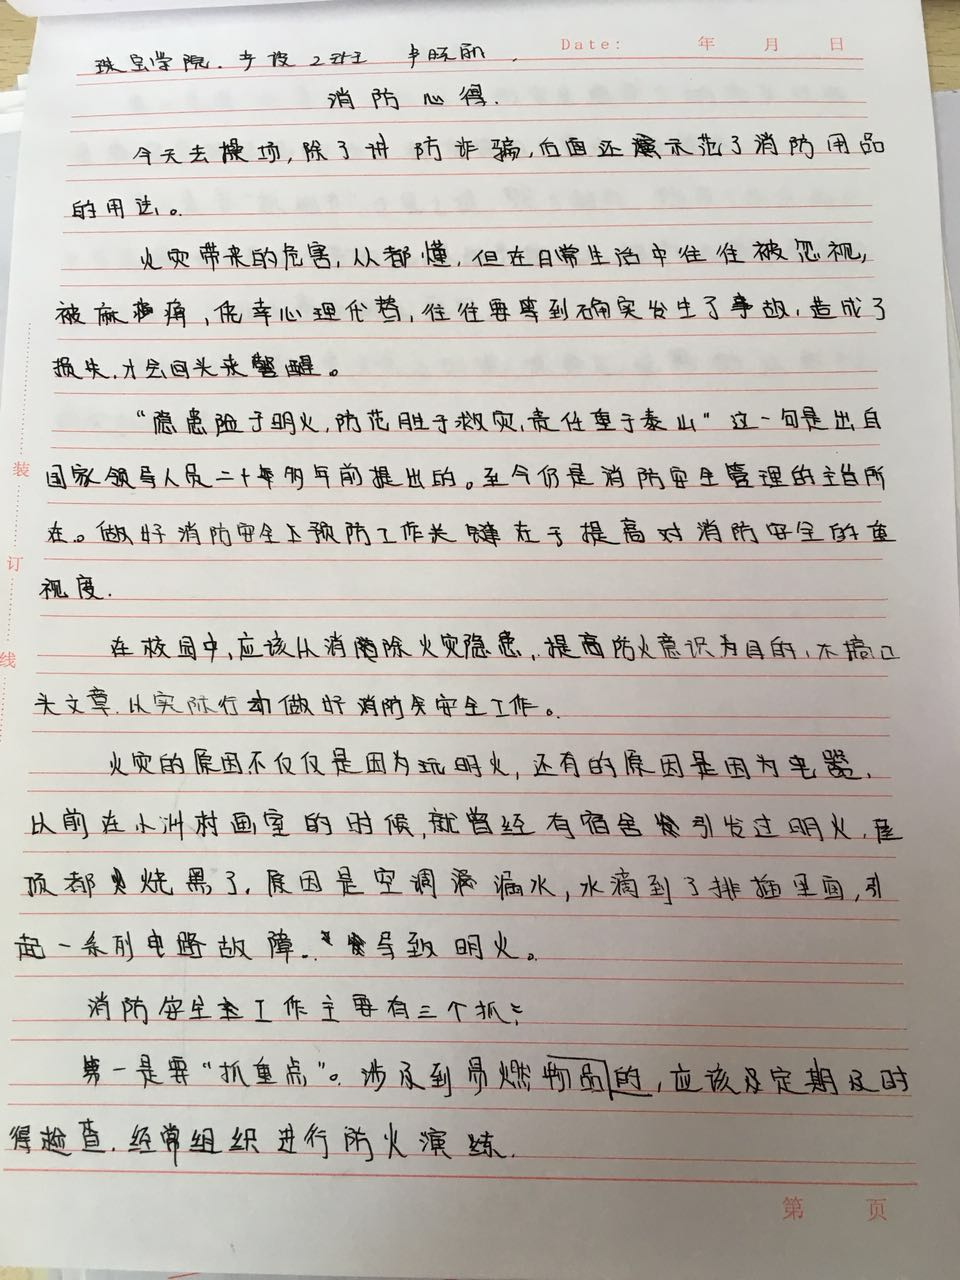 珠宝学院. 产设2班 卢晓丽.
Date: 年 月 日
消防心得.
今天去操场,除了讲防诈骗,后面还演示范了消防用品
的用法。
火灾带来的危害,人都懂,但在日常生活中往往被忽视,
被麻痹,侥幸心理代替,往往要等到确实发生了事故,造成了
损失,才会回头来警醒。
“隐患险于明火,防范胜于救灾,责任重于泰山”这一句是出自
国家领导人员二十年多年前提出的。至今仍是消防安全管理的主旨所
在。做好消防安全上预防工作关键在于提高对消防安全的重
视度.
在校园中,应该从消除火灾隐患,提高防火意识为目的,不搞口
头文章.从实际行动做好消防安全工作。
火灾的原因不仅仅是因为玩明火,还有的原因是因为电器,
以前在小洲村画室的时候,就曾经有宿舍引发过明火,屋
顶都烧黑了.原因是空调漏水,水滴到了排插里面,引
起一系列电路故障.导致明火。
消防安全工作主要有三个抓:
第一是要“抓重点”。涉及到易燃物品的,应该定期及时
得检查.经常组织进行防火演练.
装
订
线
第 页